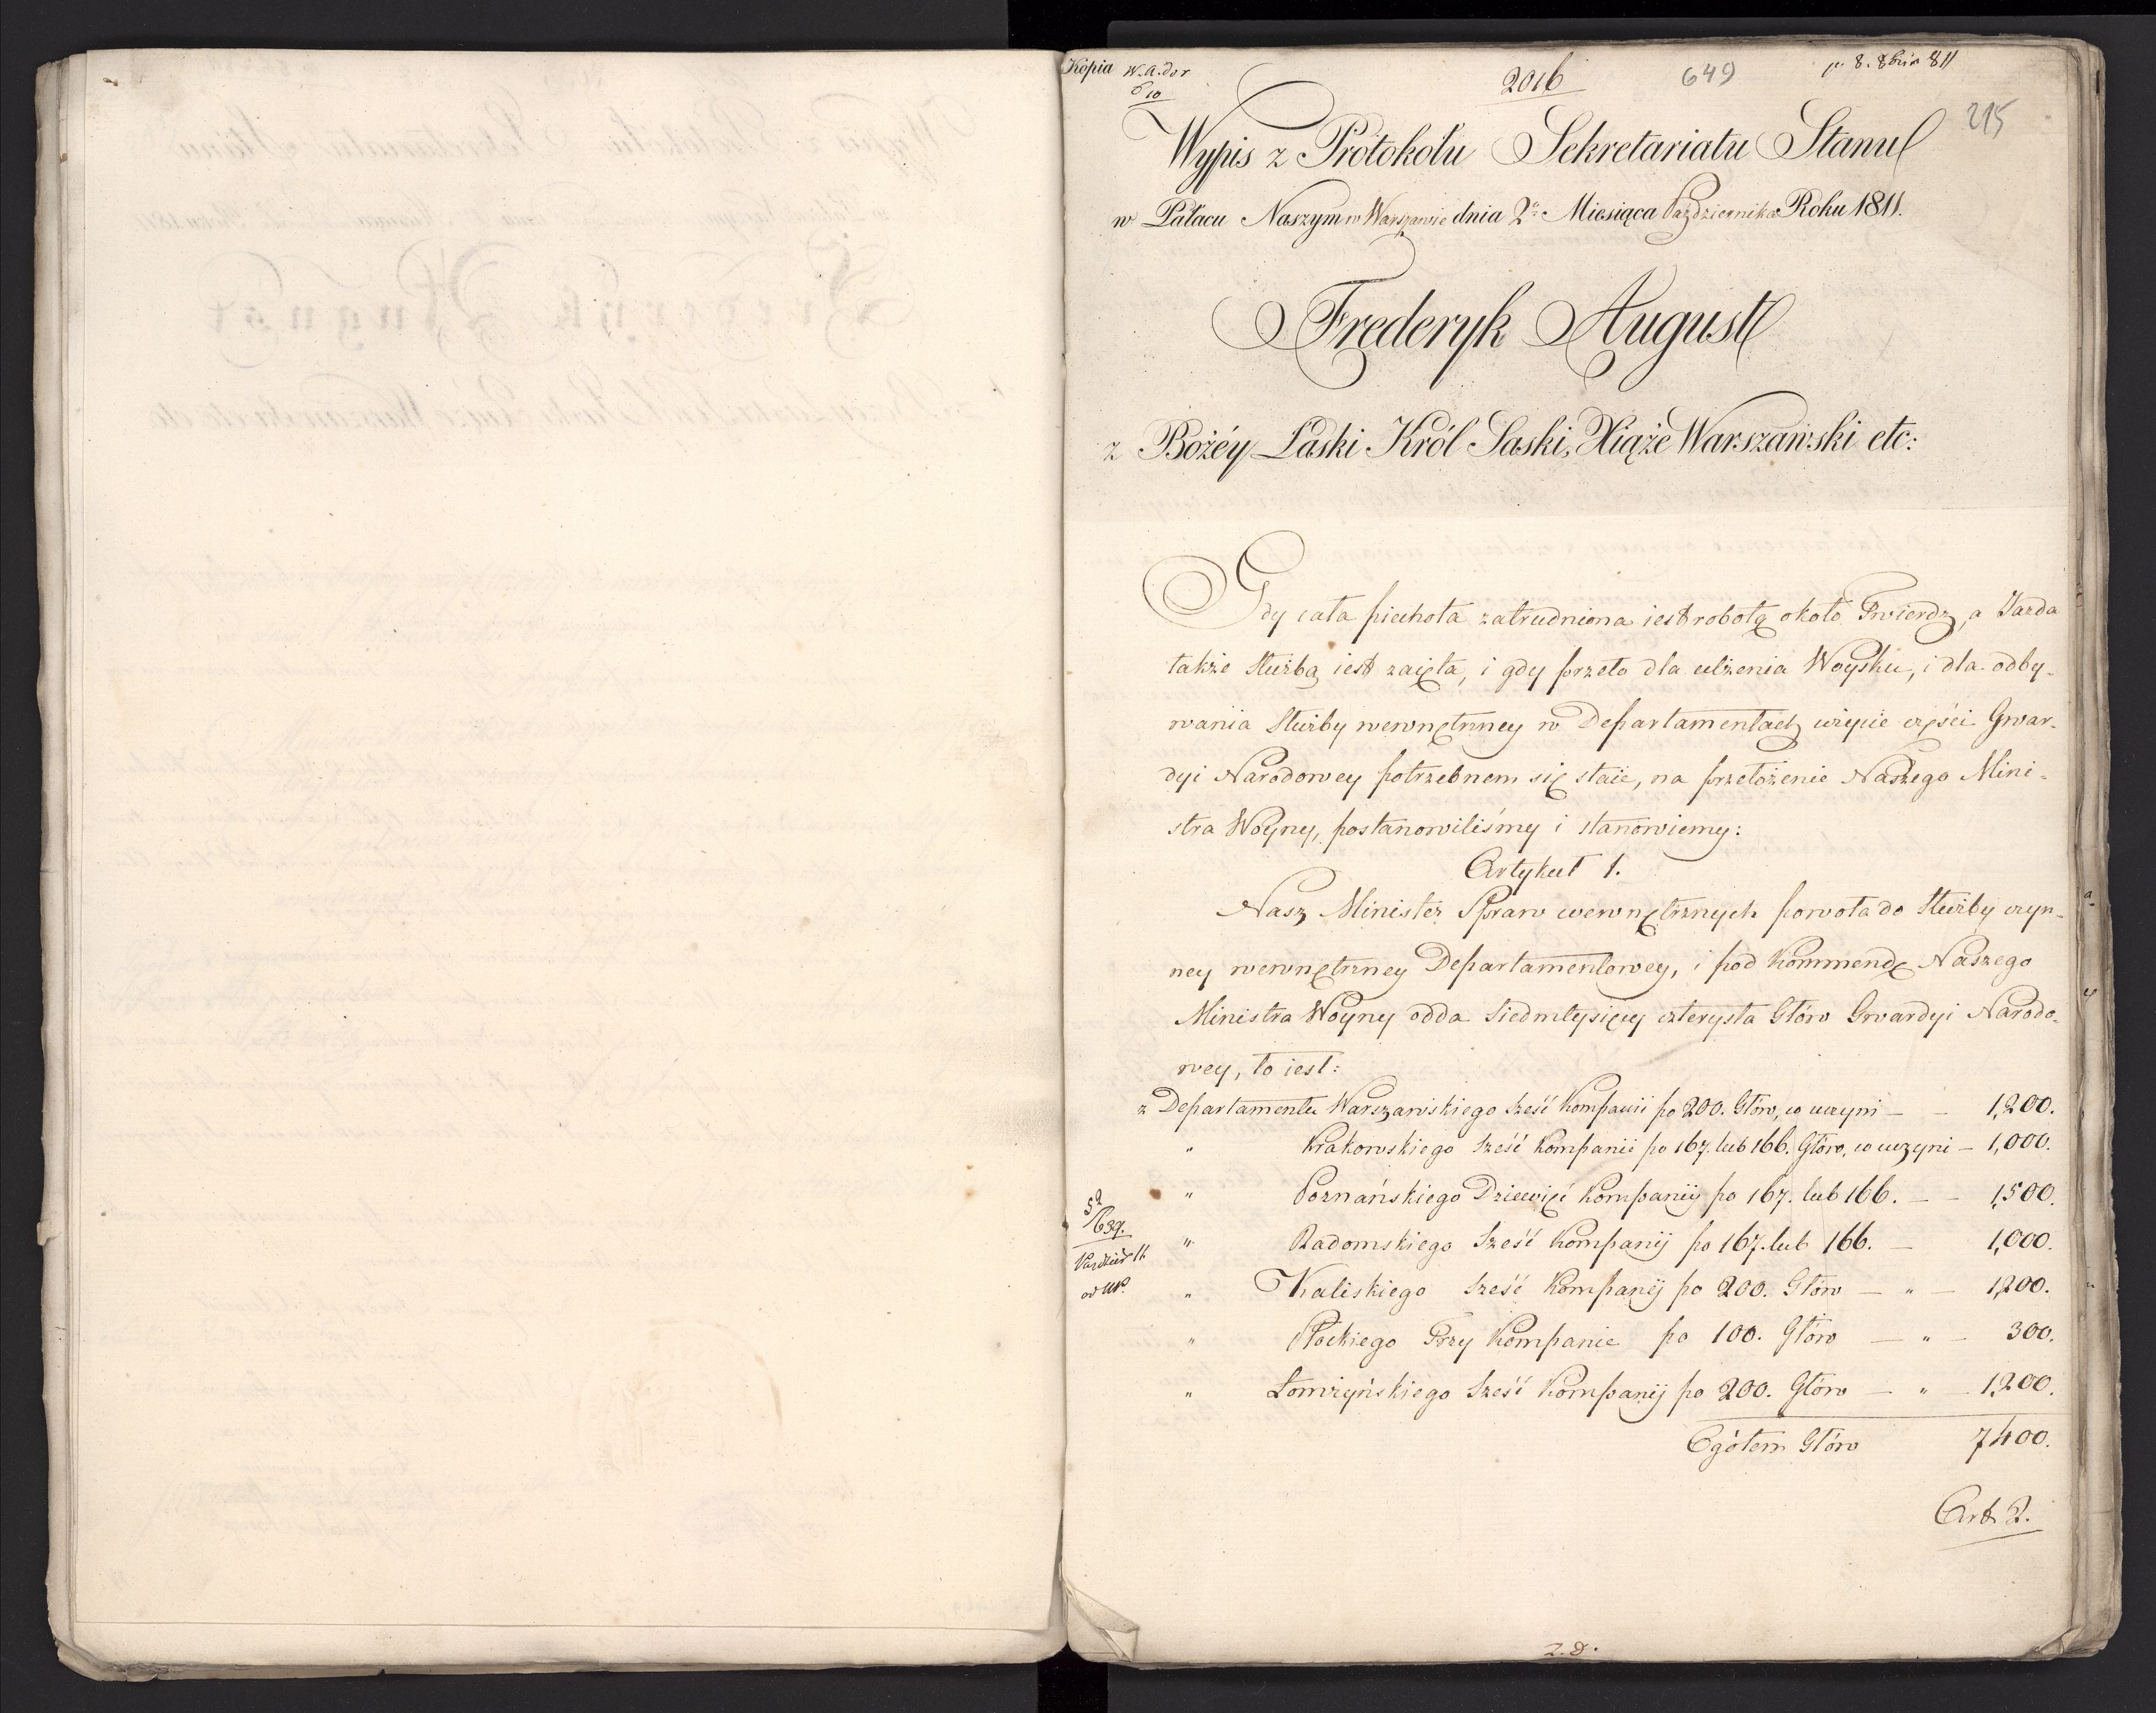 Kopia W.A. dor
2016
649
p. 8. 8bris 811
215
Wypis z Protokołu Sekretariatu Stanu
w Pałacu Naszym w Warszawie dnia 2º Miesiąca Października Roku 1811.
Frederyk August
z Bożéy Łaski Król Saski, Xiąże Warszawski etc:
Gdy cała piechota zatrudniona iest robotą około Twierdz, a Jazda
także służbą iest zaięta, i gdy przeto dla ulżenia Woysku, i dla odby-
wania Służby wewnętrzney w Departamentach użycie części Gwar-
dyi Narodowey potrzebnem się staie, na przełożenie Naszego Mini-
stra Woyny, postanowiliśmy i stanowiemy:
Artykuł 1.
Nasz Minister Spraw wewnętrznych powoła do Służby czyn-
ney wewnętrzney Departamentowey, i pod Kommendę Naszego
Ministra Woyny odda Siedmtysięcy czterysta Głów Gwardyi Narodo-
wey, to iest:
z Departamentu Warszawskiego sześć Kompanii po 200. Głów, co uczyni — — 1,200.
" Krakowskiego sześć Kompanii po 167. lub 166. Głów, co uczyni — 1,000.
" Poznańskiego Dziewięć Kompanij po 167. lub 166. — — 1,500.
" Radomskiego sześć Kompanij po 167. lub 166. — 1,000.
" Kaliskiego sześć Kompanij po 200. Głów — " — 1,200.
" Płockiego Trzy Kompanie po 100. Głów — " — 300.
" Łomżyńskiego sześć Kompanij po 200. Głów — " — 1,200.
Ogółem Głów 7400.
Art. 2.